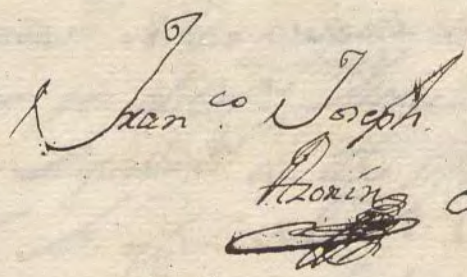 Fran.co Joseph
Azorin